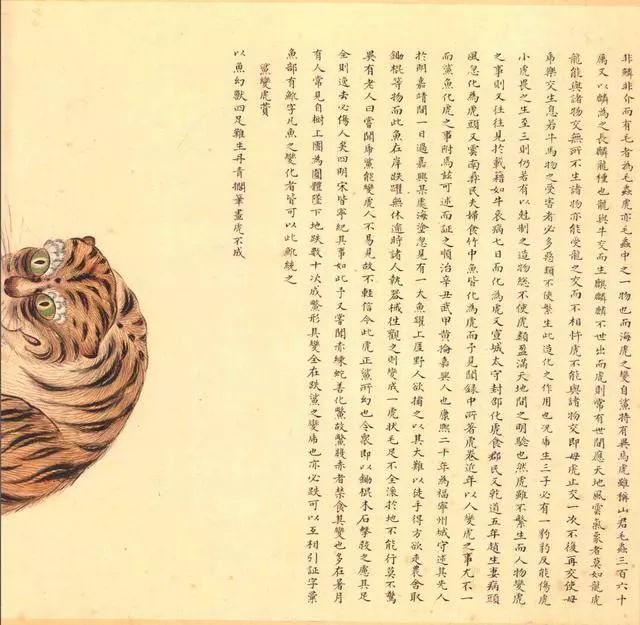 非鱗非介而有毛者為毛蟲虎亦毛蟲中之一物也而海虎之變自鯊特有異焉虎雖稱山君毛蟲三百六十
屬又以麟為之長麟龍種也龍與牛交而生麒麟麟不世出而虎則常有世間應天地風雲氣象者莫如龍虎
龍能與諸物交無所不生諸物亦能受龍之交而不相忤虎不能與諸物交即母虎止交一次不復再交使母
虎樂交生息若牛馬物之受害者必多惡類不使繁生此造化之作用也况虎生三子必有一豹豹反能傷虎
小虎畏之生至三則仍若有以尅制之造物總不使虎類盈滿天地間之明驗也然虎雖不繁生而人物變虎
之事則又往往見於載籍如牛哀病七日而化為虎又宣城太守封邵化虎食郡民又乾道五年趙生妻病頭
風忽化為虎頭又雲南彝民夫婦食竹中魚皆化為虎而予見聞錄中所著虎卷近年以人變虎之事尤不一
而鯊魚化虎之事附焉茲可述而証之順治辛丑武甲黃掄嘉興人也康熙二十年為福寧州城守述其先人
於明嘉靖間一日過嘉興某處海塗忽見有一大魚躍上厓野人欲捕之以其大難以徒手得方欲走農舍取
鋤棍等物而此魚在岸跌躍無休逾時諸人執器械往觀之則變成一虎狀毛足不全滾於地不能行莫不驚
異有老人曰嘗聞虎鯊能變虎人不易見故不輕信今此虎正鯊所幻也令衆即以鋤棍木石擊殺之慮其足
全則逸去必傷人矣四明宋皆寧紀其事如此予又嘗聞赤練蛇善化鱉故鱉腹赤者禁食其變也多在暑月
有人常見自樹上團為圓體墜下地跌數十次成鱉形其變全在跌鯊之變虎也亦必跌可以互相引証字彙
魚部有魤字凡魚之變化者皆可以此魤統之
鯊變虎賛
以魚幻獸四足難生丹青擱筆畫虎不成